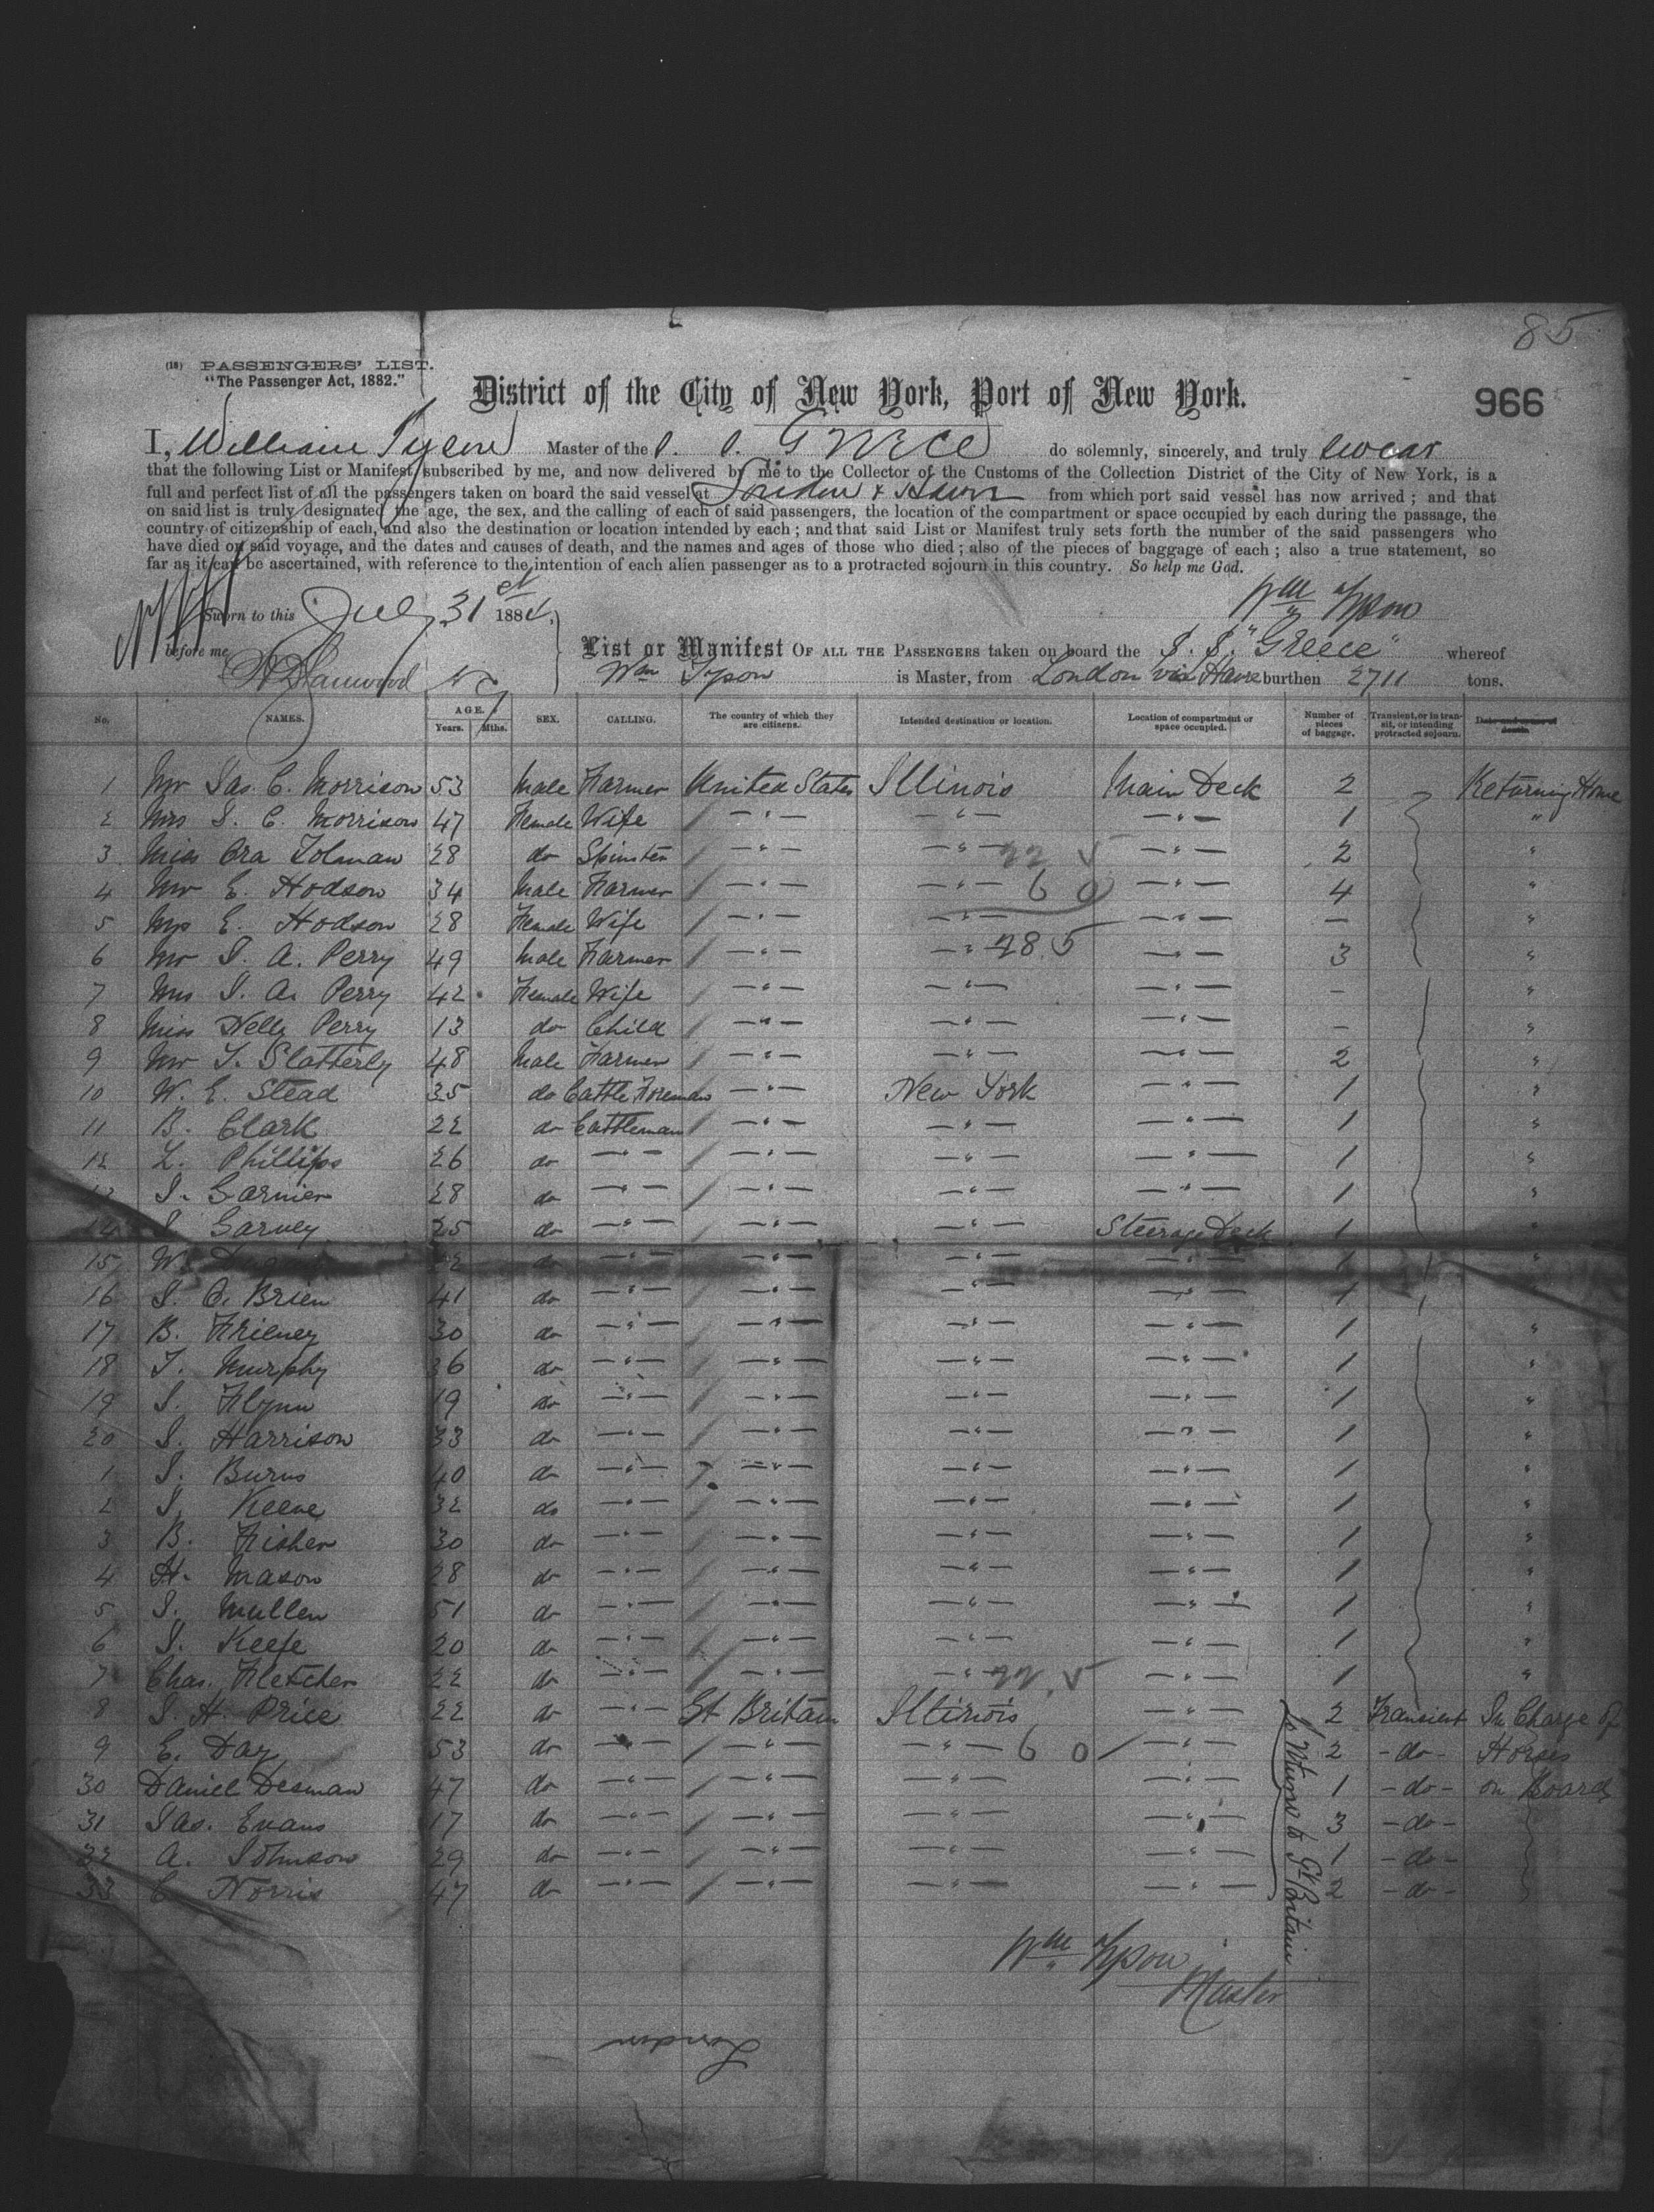 85
(18) PASSENGERS' LIST.
"The Passenger Act, 1882."
District of the City of New York, Port of New York.
966
I, William Tyson Master of the S. S. Greece do solemnly, sincerely, and truly swear
that the following List or Manifest, subscribed by me, and now delivered by me to the Collector of the Customs of the Collection District of the City of New York, is a
full and perfect list of all the passengers taken on board the said vessel at London & Havre from which port said vessel has now arrived; and that
on said list is truly designated the age, the sex, and the calling of each of said passengers, the location of the compartment or space occupied by each during the passage, the
country of citizenship of each, and also the destination or location intended by each; and that said List or Manifest truly sets forth the number of the said passengers who
have died on said voyage, and the dates and causes of death, and the names and ages of those who died; also of the pieces of baggage of each; also a true statement, so
far as it can be ascertained, with reference to the intention of each alien passenger as to a protracted sojourn in this country. So help me God.
Sworn to this July 31st 1884, Wm Tyson
before me
List or Manifest OF ALL THE PASSENGERS taken on board the S. S. "Greece" whereof
Wm Tyson is Master, from London via Havre burthen 2711 tons.
No. NAMES. AGE. Years. Mths. SEX. CALLING. The country of which they are citizens. Intended destination or location. Location of compartment or space occupied. Number of pieces of baggage. Transient, or in transit, or intending protracted sojourn. Date and cause of death.
1 Mr Jas. C. Morrison 53 Male Farmer United States Illinois Main Deck 2 Returning Home
2 Mrs J. C. Morrison 47 Female Wife / — " — — " — — " — 1 "
3 Miss Ora Tolman 28 do Spinster / — " — — " — 22 5 — " — 2 "
4 Mr E. Hodson 34 Male Farmer / — " — — " — 6 0 — " — 4 "
5 Mrs E. Hodson 28 Female Wife / — " — — " — — " — — "
6 Mr J. A. Perry 49 Male Farmer / — " — — " — 28.5 — " — 3 "
7 Mrs J. A. Perry 42 Female Wife / — " — — " — — " — – "
8 Miss Nelly Perry 13 do Child / — " — — " — — " — – "
9 Mr T. Slatterly 48 Male Farmer / — " — — " — — " — 2 "
10 W. E. Stead 35 do Cattle Foreman — " — New York — " — 1 "
11 B. Clark 22 do Cattleman / — " — — " — — " — 1 "
12 L. Phillips 26 do — " — / — " — — " — — " — 1 "
13 J. Garnier 28 do — " — / — " — — " — — " — 1 "
14 J. Garvey 25 do — " — / — " — — " — Steerage Deck 1 "
15 W. 22 do — " — / — " — — " — — " — 1 "
16 J. O. Brien 41 do — " — / — " — — " — — " — 1
17 B. Frieney 30 do — " — / — " — — " — — " — 1 "
18 T. Murphy 36 do — " — / — " — — " — — " — 1 "
19 J. Flynn 19 do — " — / — " — — " — — " — 1 "
20 J. Harrison 33 do — " — / — " — — " — — " — 1 "
1 J. Burns 40 do — " — / — " — — " — — " — 1 "
2 J. Keene 32 do — " — / — " — — " — — " — 1 "
3 B. Fisher 30 do — " — / — " — — " — — " — 1 "
4 H. Mason 28 do — " — / — " — — " — — " — 1 "
5 J. Mullen 51 do — " — / — " — — " — — " — 1 "
6 J. Keefe 20 do — " — / — " — — " — — " — 1 "
7 Chas. Fletcher 22 do — " — / — " — — " — 22.5 — " — 1 "
8 J. H. Price 22 do — " — Gt Britain Illinois — " — 2 Transient In Charge of
9 E. Day 53 do — " — / — " — — " — 6 0 / — " — 2 – do – Horses
30 Daniel Desman 47 do — " — / — " — — " — — " — 1 – do – on Board
31 Jas. Evans 17 do — " — / — " — — " — — " — 3 – do –
32 A. Johnson 29 do — " — / — " — — " — — " — 1 – do –
33 C. Norris 47 do — " — / — " — — " — — " — 2 – do –
To Return to Gt Britain
Wm Tyson
Master
London